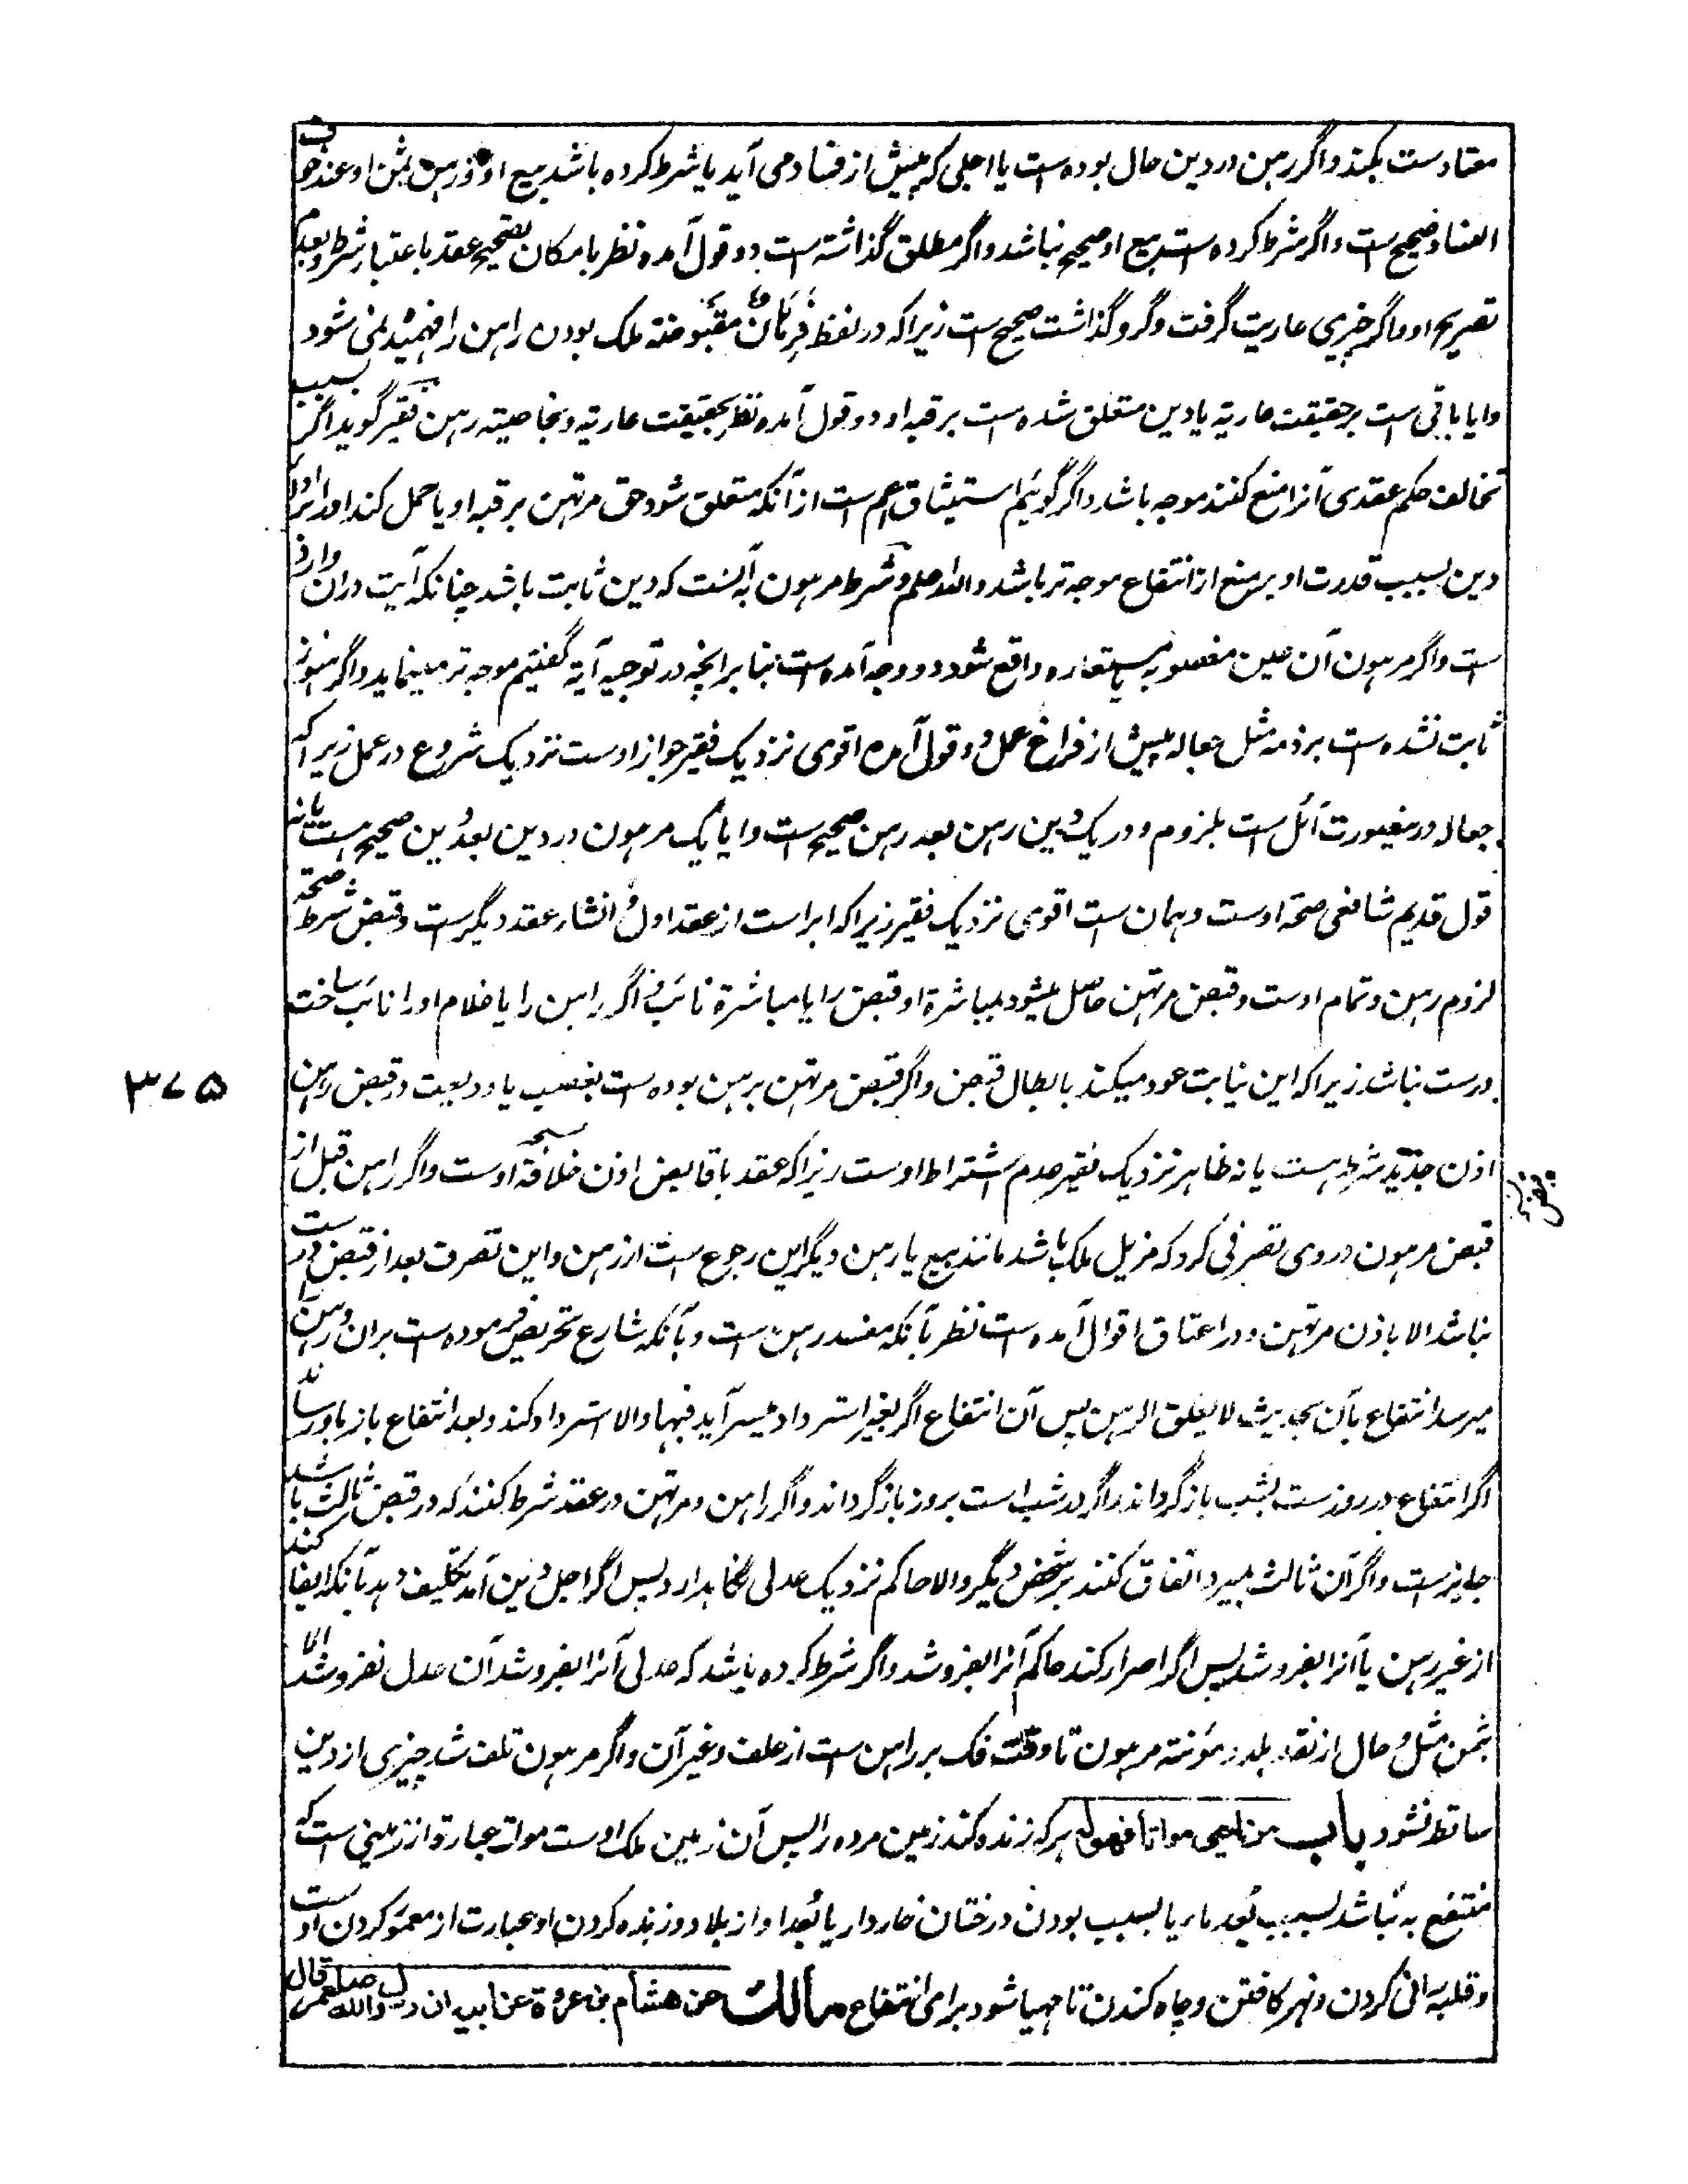 معتادست بکند و اگر رهن در دین حال بوده است یا اجلی که پیش از فساد می آید یا شرط کرده باشد بیع او و رهن ثمن او عند خوف
الفساد صحیح ست و اگر شرط کرده است بیع او صحیح نباشد و اگر مطلق گذاشته است دو قول آمده نظر بامکان تصحیح عقد باعتبار شرط و بعدم
تصریح او و اگر چیزی عاریت گرفت و گرو گذاشت صحیح ست زیراکه در لفظ فَرِهَانٌ مَقْبُوضَة ملک بودن راهن را فهمیده نمی شود
و ایا باقی است بر حقیقت عاریة یا دین متعلق شده است برقبه او دو قول آمده نظر بحقیقت عاریة و بخاصیته رهن فقیر گوید اگر بسبب
تخالف حکم عقدی آنرا منع کنند موجه باشد و اگر گوئیم استیثاق اعم است از آنکه متعلق شود حق مرتهن برقبه او یا حمل کند او را بر ادای
دین بسبب قدرت او بر منع از انتفاع موجه تر باشد والله اعلم و شرط مرهون به آنست که دین ثابت باشد چنانکه آیت دران وارد
است و اگر مرهون آن عین مغصوبه یا مستعاره واقع شود دو وجه آمده است بنابر آنچه در توجیه آیة گفتیم موجه تر مینماید و اگر هنوز
ثابت نشده است برذمه مثل جعاله پیش از فراغ عمل دو قول آمده اقوی نزدیک فقیر جواز اوست نزدیک شروع در عمل زیراکه
جعاله درینصورت آئل ست بلزوم و در یک دین رهن بعد رهن صحیح ست و ایا یک مرهون در دین بعد دین صحیح هست یا نه
قول قدیم شافعی صحة اوست و همان ست اقوی نزدیک فقیر زیراکه ابراست از عقد اول و انشاء عقد دیگرست و قبض شرط صحة
لزوم رهن و تمام اوست و قبض مرتهن حاصل میشود بمباشرة او قبض را یا مباشرة نائب او اگر راهن را یا غلام او را نائب ساخت
درست نباشد زیراکه این نیابت عود میکند بابطال قبض و اگر قبض مرتهن بر عین بوده است بغصب یا ودیعت در قبض رهن
اذن جدید شرط هست یا نه ظاهر نزدیک فقیر عدم اشتراط اوست زیراکه عقد با قابض اذن خلافة اوست و اگر راهن قبل از
قبض مرهون در وی تصرفی کرد که مزیل ملک باشد مانند بیع یا رهن دیگر این رجوع است از رهن و این تصرف بعد از قبض درست
نباشد الا باذن مرتهن و در اعتاق اقوال آمده است نظر بآنکه مفسد رهن است و بآنکه شارع تحریض فرموده است بران و راهن را
میرسد انتفاع بآن بحدیث لا یغلق الرهن پس آن انتفاع اگر بغیر استرداد میسر آید فبها و الا استرداد کند و بعد انتفاع باز باو رساند
اگر انتفاع در روزست بشب بازگرداند و اگر در شب است بروز بازگرداند و اگر راهن و مرتهن در عقد شرط کنند که در قبض ثالث باشد
جایزست و اگر آن ثالث بمیرد اتفاق کنند بر شخص دیگر و الا حاکم نزدیک عدلی نگاهدارد پس اگر اجل دین آمد تکلیف دهد بآنکه ایفا کند
از غیر رهن یا آنرا بفروشد پس اگر اصرار کند حاکم آنرا بفروشد و اگر شرط کرده باشد که عدلی آنرا بفروشد آن عدل نفروشد الا
بثمن مثل و حال از نقد بلد و مؤنته مرهون تا وقت فک بر راهن ست از علف و غیر آن و اگر مرهون تلف شد چیزی از دین
ساقط نشود باب من احیی مواتا فهو له هر که زنده کند زمین مرده را پس آن زمین ملک اوست موات عبارة از زمینی است که
منتفع به نباشد بسبب بُعد ماء یا بسبب بودن درختان خاردار یا بُعد او از بلاد و زنده کردن او عبارت از معمور کردن اوست
و قلبه رانی کردن و نهر کافتن و چاه کندن تا مهیا شود برای انتفاع مالک عن هشام بن عروة عن ابیه ان رسول الله صلعم قال
۳۷۵